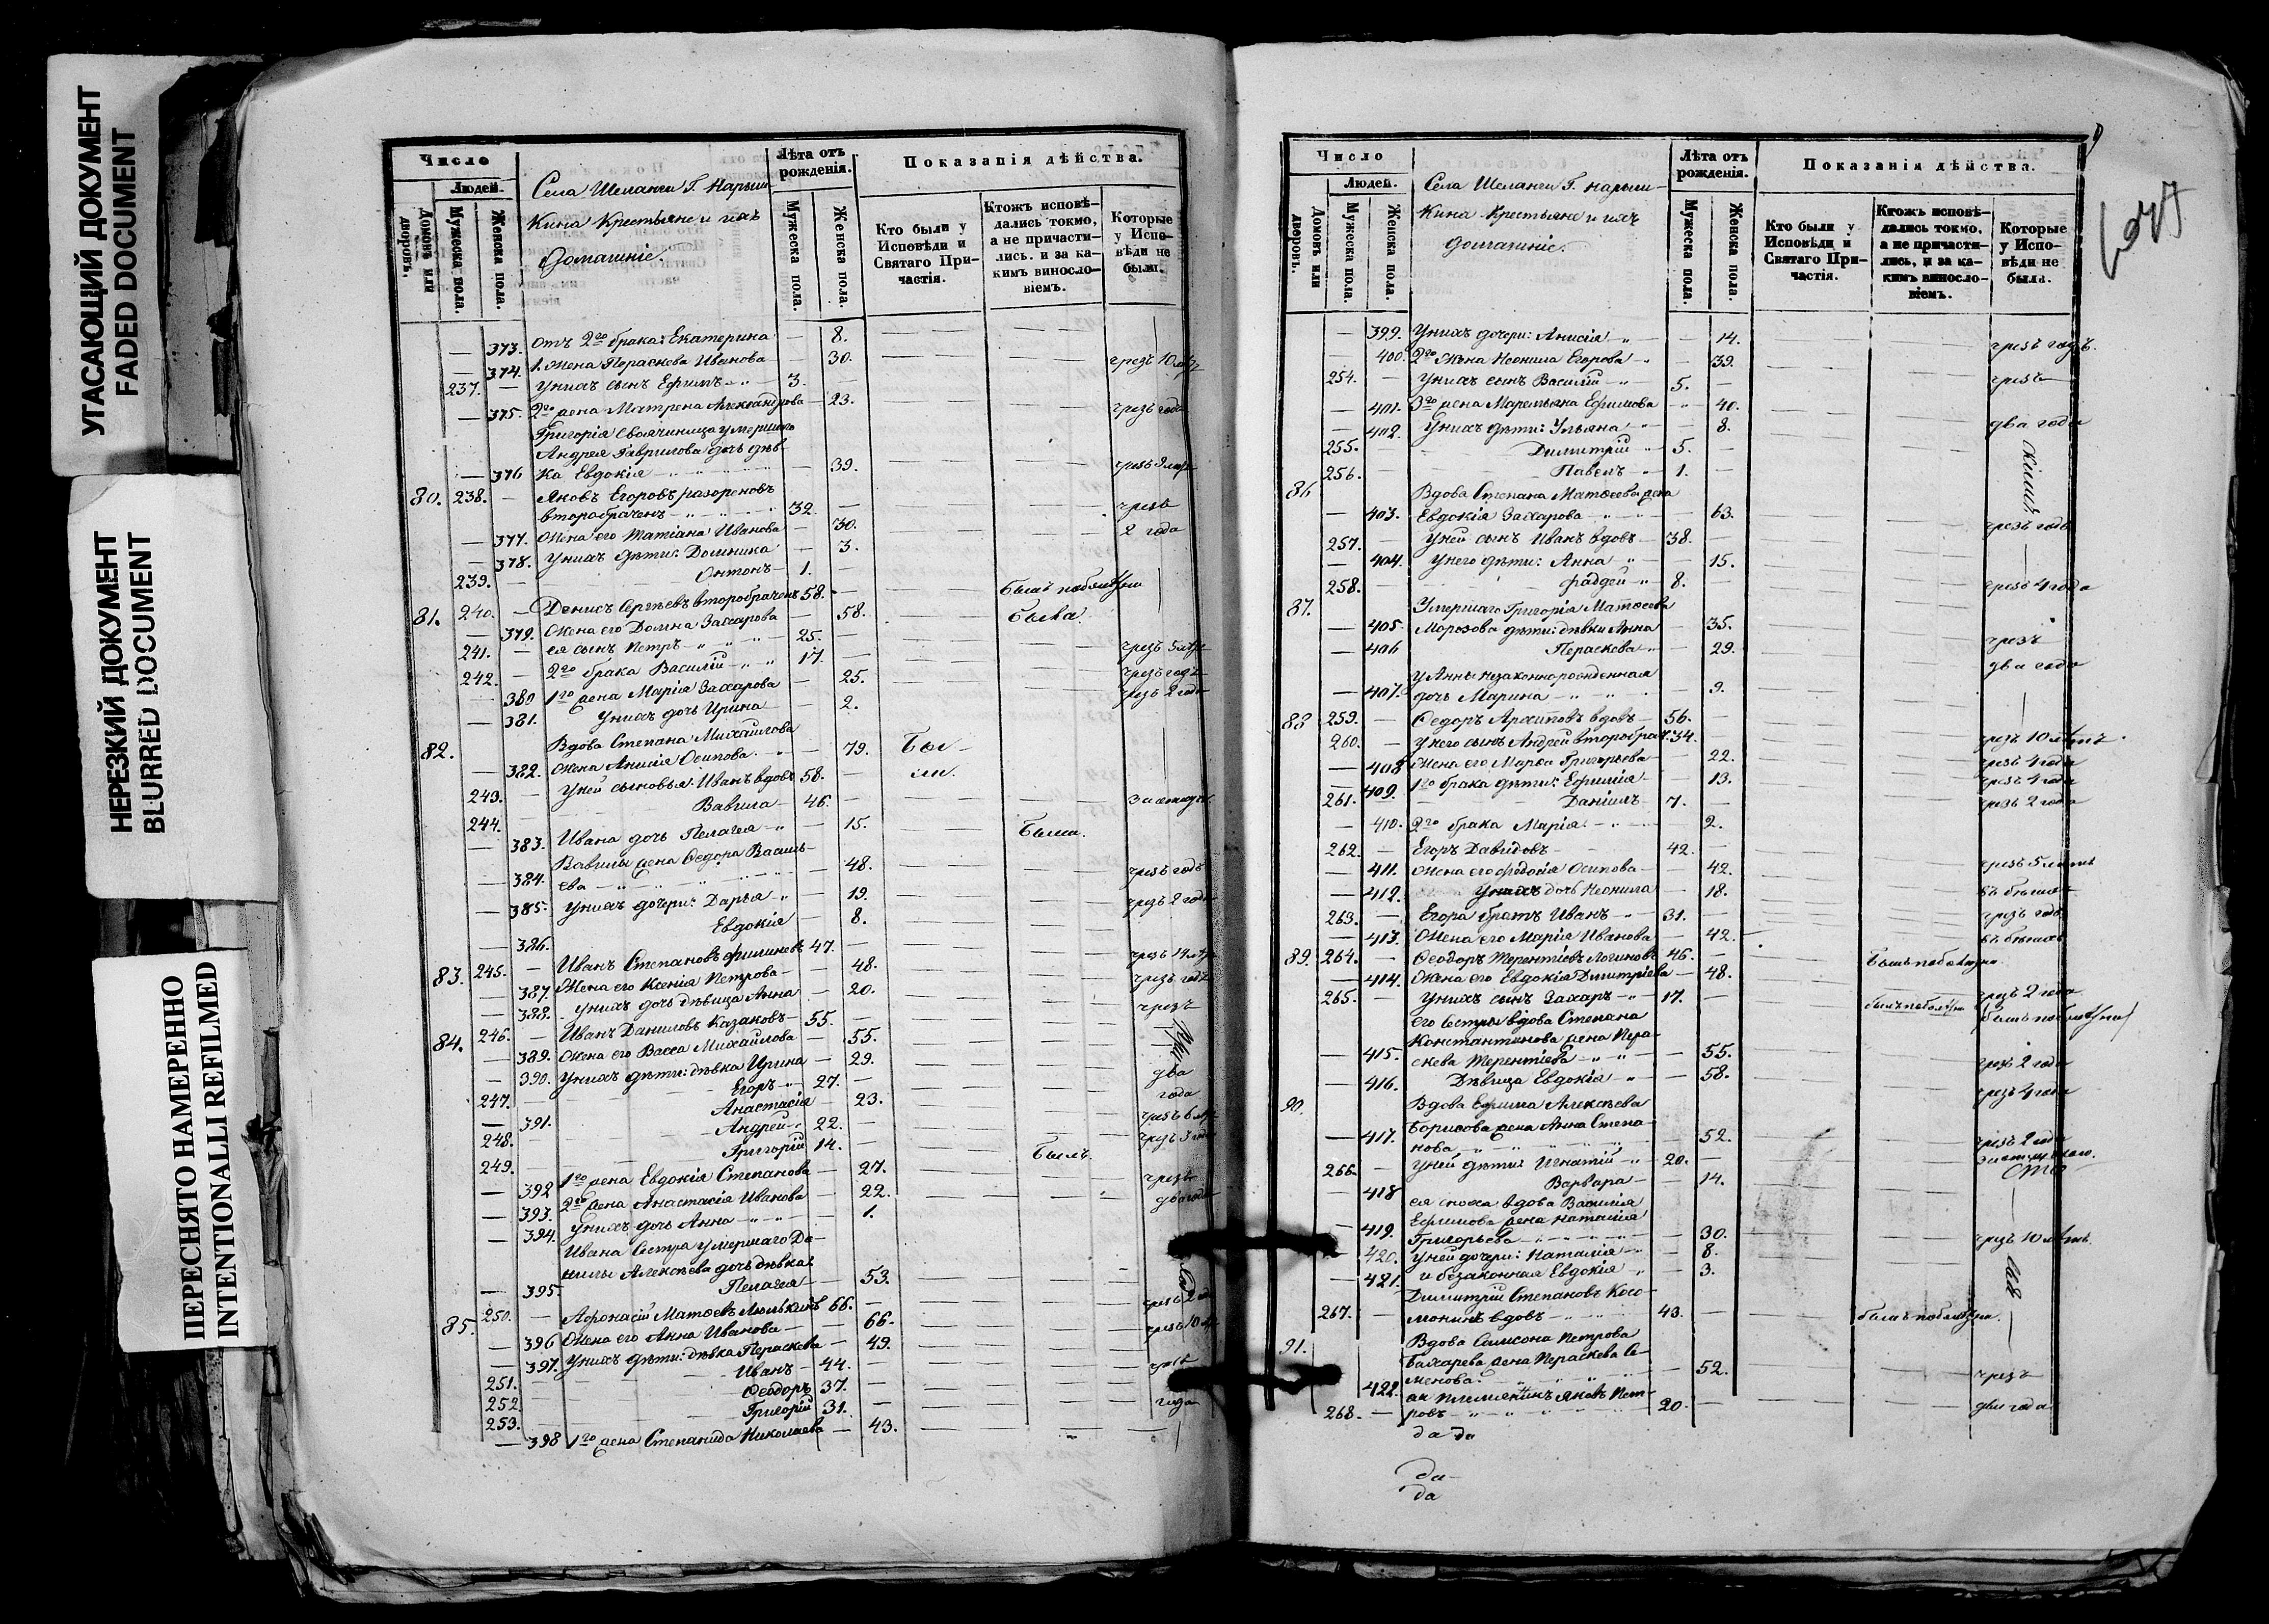 УГАСАЮЩИЙ ДОКУМЕНТ
FADED DOCUMENT
НЕРЕЗКИЙ ДОКУМЕНТ
BLURRED DOCUMENT
ПЕРЕСНЯТО НАМЕРЕННО
INTENTIONALLI REFILMED
Число
Людей.
Домовъ или дворовъ.
Мужеска пола.
Женска пола.
Села Шеланги Г. Нарыш-
кина Крестьяне и ихъ
Домашніе.
Лѣта отъ рожденія.
Мужеска пола.
Женска пола.
Показанія дѣйства.
Кто были у Исповѣди и Святаго При-частія.
Ктожъ исповѣ-дались токмо, а не причасти-лись. и за ка-кимъ винослo-віемъ.
Которые у Испо-вѣди не были.
— 373. отъ 2го брака: Екатерина — 8.
— 374. 1. жена Параскева Иванова — 30. чрезъ 10 лѣтъ
237. — у нихъ сынъ Ефимъ 3. —
— 375. 2го жена Матрена Александрова — 23. чрезъ года
Григорія свояченица умершаго
Андрея Гаврилова дочь дѣв-
— 376 ка Евдокія — 39.
80. 238. — Яковъ Егоровъ
второбраченъ 32. — чрезъ
— 377. Жена его Татіана Иванова — 30. 2 года
— 378. У нихъ дѣти: Домника — 3.
239. — Антонъ 1. —
81. 240. — Денисъ Сергѣевъ второбраченъ 58. —
— 379. Жена его Домна Захарова — 58. Была.
241. — ея сынъ Петръ 25. — чрезъ 5 лѣтъ
242. — 2го брака Василій 17. — чрезъ годъ
— 380 1го жена Марія Захарова — 25. чрезъ 2 года
— 381. У нихъ дочь Ирина — 2.
82. Вдова Степана Михайлова
— 382. Жена Анисія Осипова — 79. Бы-
243. — У ней сыновья: Иванъ вдовъ 58. — ли.
244. — Вавила 46. —
— 383. Ивана дочь Пелагея — 15. Была.
Вавилы жена Федора Василь-
— 384. ева — 48. чрезъ годъ
— 385. У нихъ дочери: Дарья — 19. чрезъ 2 года
— 386. Евдокія — 8.
83. 245. — Иванъ Степановъ 47. —
— 387. Жена его Ксенія Петрова — 48. чрезъ годъ
— 388. у нихъ дочь дѣвица Анна — 20. чрезъ
84. 246. — Иванъ Даниловъ Казаковъ 55. —
— 389. Жена его Васса Михайлова — 55.
— 390. У нихъ дѣти: дѣвка Ирина — 29. два
247. — Егоръ 27. — года
— 391. Анастасія — 23.
248. — Андрей 22. — чрезъ 3 года
249. — Григорій 14. — Былъ.
— 392 1го жена Евдокія Степанова — 27. чрезъ
— 393. 2го жена Анастасія Иванова — 22. два года
— 394. у нихъ дочь Анна — 1.
Ивана Сестра умершаго Да-
нилы Алексѣева дочь дѣвка:
— 395. Пелагея — 53.
85. 250. — Афонасій Матвѣевъ 66. —
— 396 Жена его Анна Иванова — 66.
— 397. У нихъ дѣти: дѣвка Параскева — 49.
251. — Иванъ 44. — чрезъ
252. — Феодоръ 37. —
253. — Григорій 31. — года
— 398 1го жена Степанида Николаева — 43.
Число
Людей.
Домовъ или дворовъ.
Мужеска пола.
Женска пола.
Села Шеланги Г. Нарыш-
кина Крестьяне и ихъ
домашніе.
Лѣта отъ рожденія.
Мужеска пола.
Женска пола.
Показанія дѣйства.
Кто были у Исповѣди и Святаго При-частія.
Ктожъ исповѣ-дались токмо, а не причасти-лись, и за ка-кимъ винослo-віемъ.
Которые у Испо-вѣди не были.
— 399. У нихъ дочери: Анисія — 14. чрезъ годъ.
— 400. 2го Жена Неонила Егорова — 39.
254. — У нихъ сынъ Василій 5. — чрезъ
— 401. 3го жена Маремьяна Ефимова — 40.
— 402. У нихъ дѣти: Ульяна — 8. два года
255. — Димитрій 5. —
256. — Павелъ 1. —
86 Вдова Степана Матвѣева жена
— 403. Евдокія Захарова — 63. чрезъ годъ
257. — У ней сынъ Иванъ вдовъ 38. —
— 404. У него дѣти: Анна — 15.
258. — Фаддей 8. — чрезъ 4 года
87. Умершаго Григорія Матвѣева
— 405. Морозова дѣти: дѣвки Анна — 35. чрезъ
— 406 Параскева — 29. два года
У Анны незаконнорожденная
— 407. дочь Марина — 9.
88 259. — Федоръ Архиповъ вдовъ 56. —
260. — У него сынъ Андрей второбрач. 34. — чрезъ 10 лѣтъ.
— 408 Жена его Марья Григорьева — 22. чрезъ 4 года
— 409. 1го брака дѣти: Ефимія — 13. чрезъ 4 года
261. — Даніилъ 7. — чрезъ 2 года
— 410. 2го брака Марія — 2.
262. — Егоръ Давидовъ 42. —
— 411. Жена его Федосія Осипова — 42. чрезъ 5 лѣтъ
— 412. у нихъ дочь Неонила — 18. въ бѣгахъ
263. — Егора братъ Иванъ 31. — чрезъ годъ
— 413. Жена его Марія Иванова — 42. въ бѣгахъ
89. 264. — Феодоръ Терентіевъ Логиновъ 46. —
— 414. Жена его Евдокія Димитріева — 48.
265. — У нихъ сынъ Захаръ 17. — чрезъ 2 года
его Сестры вдова Степана
Константинова жена Пера-
— 415. скева Терентіева — 55. чрезъ 2 года
— 416. Дѣвица Евдокія — 58. чрезъ 4 года
90. Вдова Ефима Алексѣева
Борисова жена Анна Степа-
— 417. нова — 52. чрезъ 2 года
266. — У ней дѣти: Игнатій 20. —
— 418 Варвара — 14.
ея сноха вдова Василія
Ефимова жена Наталія
— 419. Григорьева — 30. чрезъ 10 лѣтъ.
— 420. У ней дочери: Наталія — 8.
— 421. и безаконная Евдокія — 3.
Димитрій Степановъ Косо-
267. — вдовъ 43. —
91. Вдова Самсона Петрова
Бахарева жена Параскева Се-
— 422. менова — 52. чрезъ
ея племянникъ Яковъ Пет-
268. — ровъ 20. — два года
да да
да
да